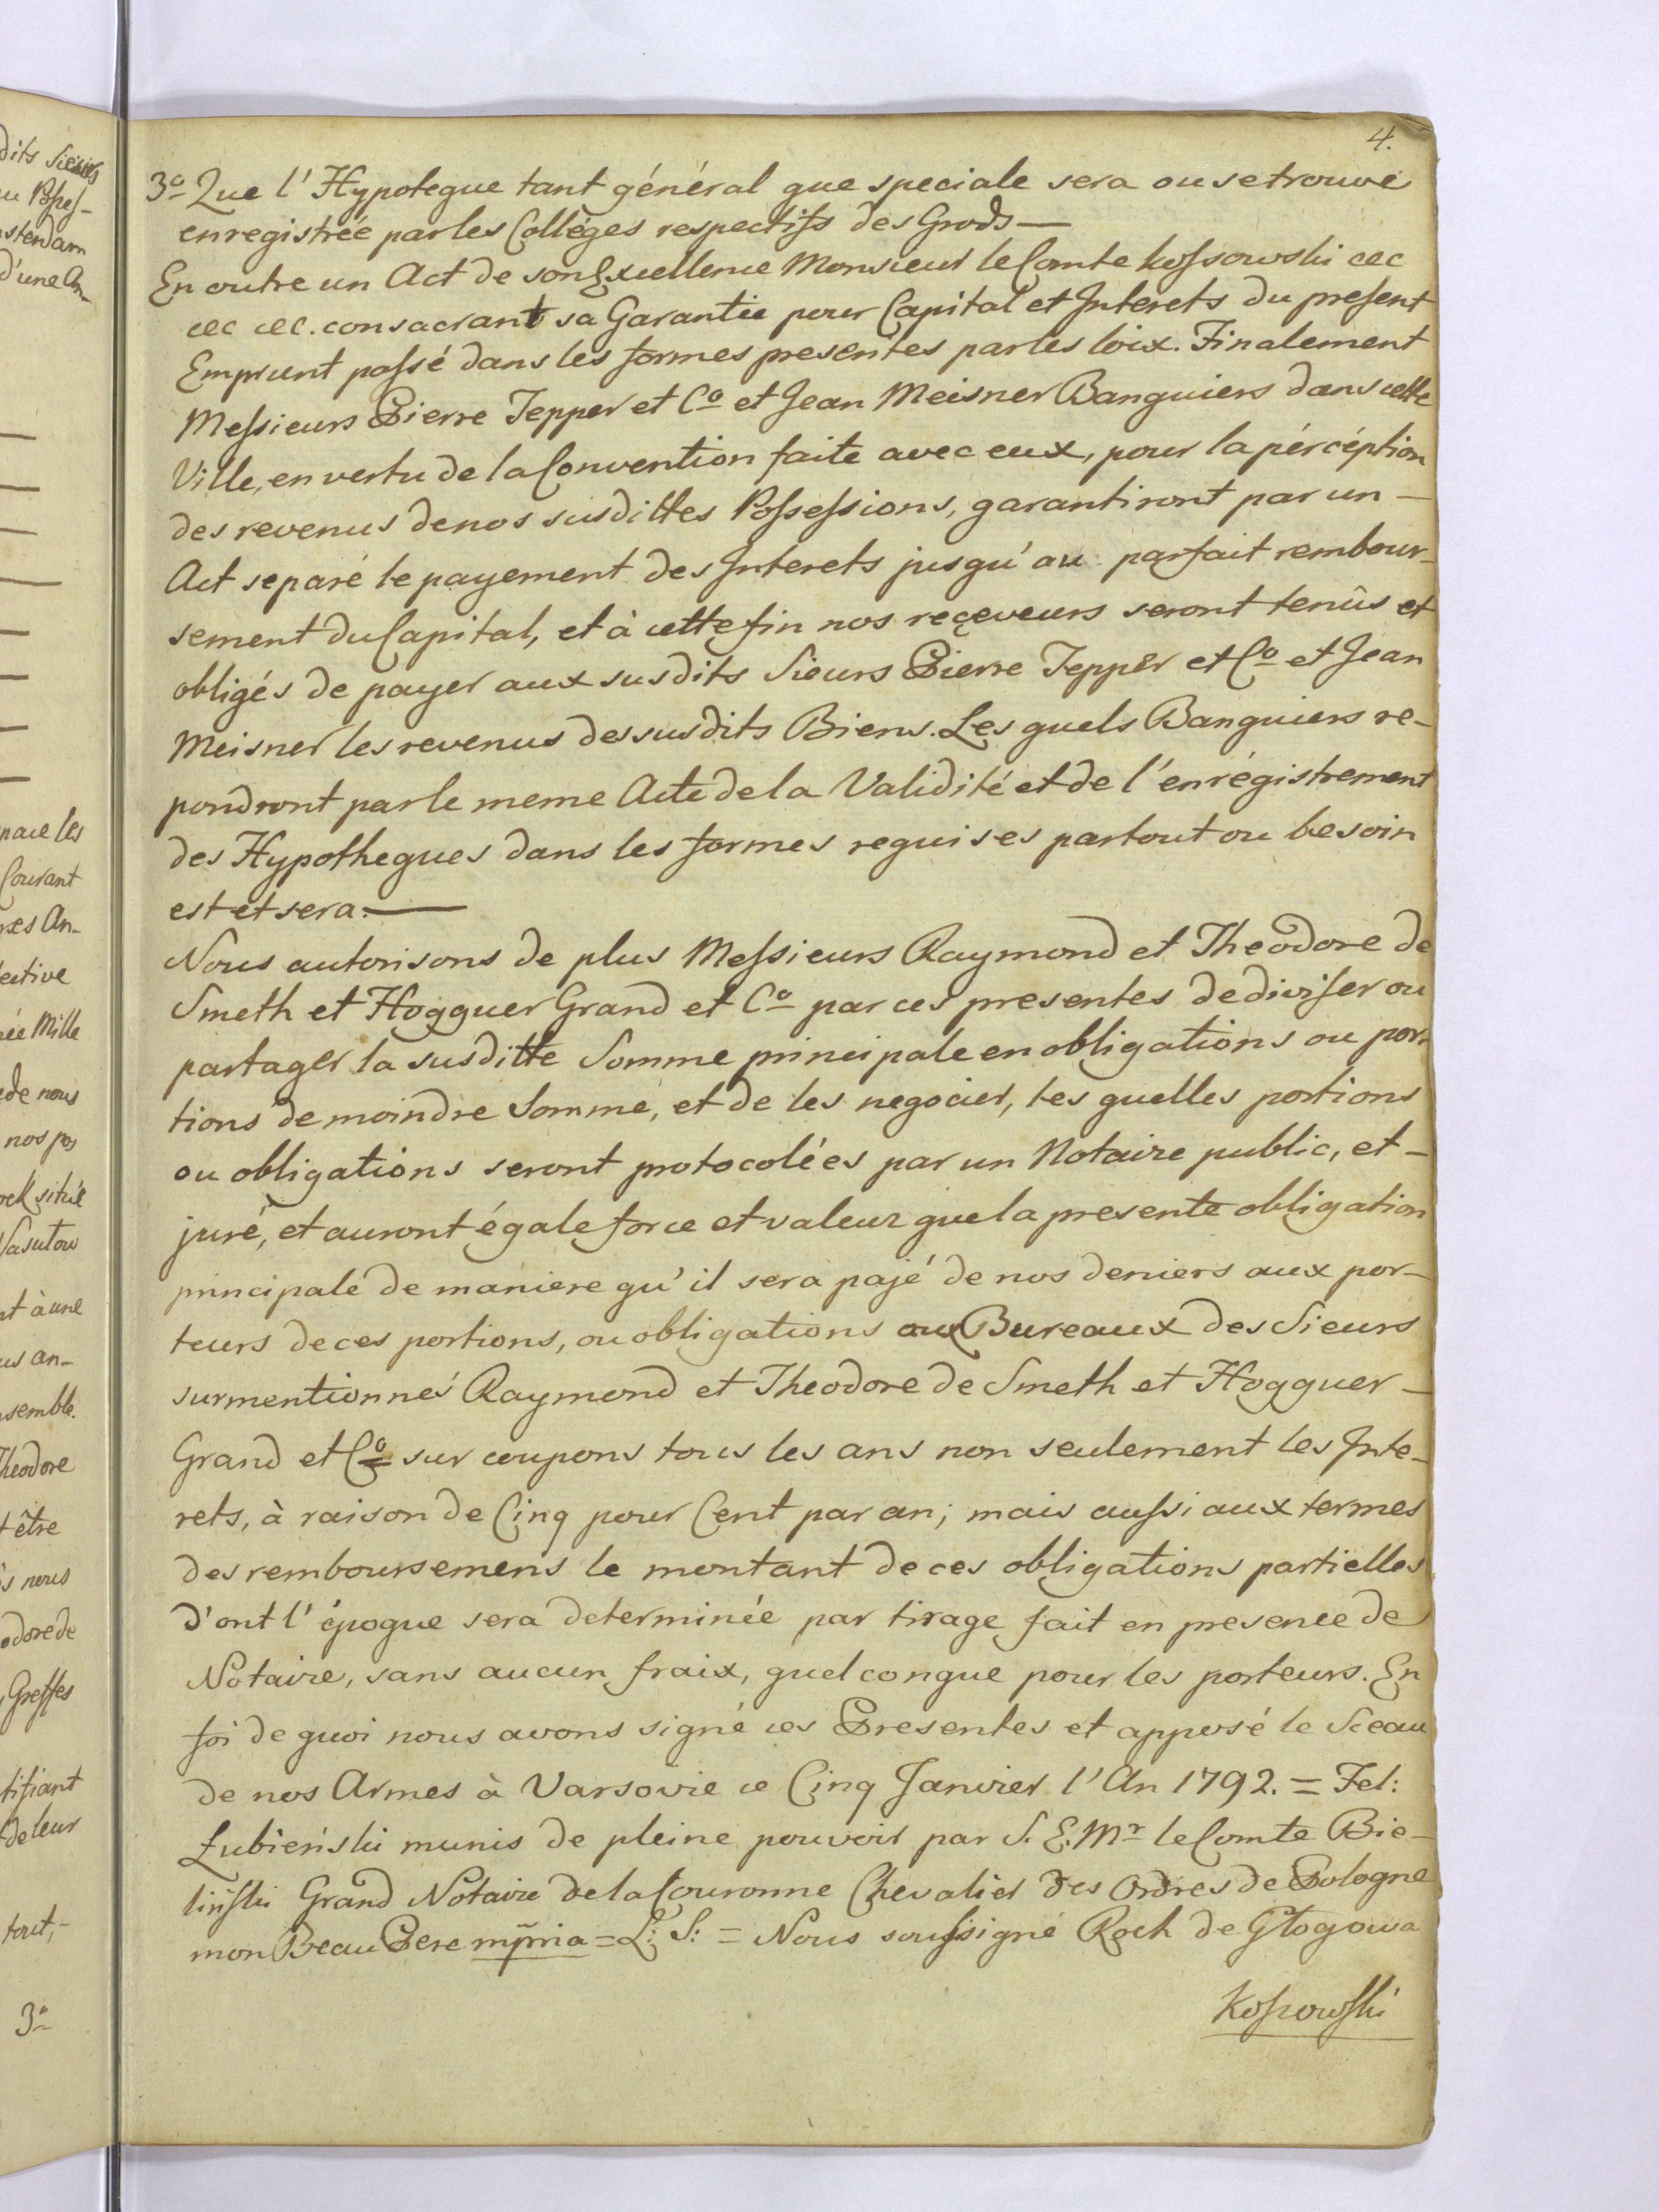 4.
3º Que l'Hypoteque tant général que speciale sera ou se trouve
enregistrée par les Colléges respectifs des Grods —
En outre un Act de son Excellence Monsieur le Comte Kossowski &c
&c &c. consacrant sa Garantie pour Capital et Interets du present
Emprunt passé dans les formes presentes par les loix. Finalement
Messieurs Pierre Tepper et Cº et Jean Meisner Banquiers dans cette
Ville, en vertu de la Convention faite avec eux, pour la pércéption
des revenus de nos susdittes Possessions, garantiront par un —
Act separé le payement des Interets jusqu'au parfait rembour-
sement du Capital, et à cette fin nos reçeveurs seront tenûs et
obligés de payer aux susdits Sieurs Pierre Tepper et Cº et Jean
Meisner les revenus des susdits Biens. Les quels Banquiers re-
pondront par le meme Acte de la Validité et de l'enrégistrement
des Hypotheques dans les formes requises partout ou besoin
est et sera. —
Nous autorisons de plus Messieurs Raymond et Theodore de
Smeth et Hogguer Grand et Cº par ces presentes de diviser ou
partager la susditte Somme principale en obligations ou por-
tions de moindre Somme, et de les negocier, les quelles portions
ou obligations seront protocolées par un Notaire public, et —
juré, et auront égale force et valeur que la presente obligation
principale de maniere qu'il sera pajé de nos deniers aux por-
teurs de ces portions, ou obligations aux Bureaux des Sieurs
surmentionnés Raymond et Theodore de Smeth et Hogguer —
Grand et Cº sur coupons tous les ans non seulement les Inte-
rets, à raison de Cinq pour Cent par an; mais aussi aux termes
des remboursemens le montant de ces obligations partielles
d'ont l'époque sera determinée par tirage fait en presence de
Notaire, sans aucun fraix, quelconque pour les porteurs. En
foi de quoi nous avons signé ces Presentes et apposé le Sceau
de nos Armes à Varsovie ce Cinq Janvier l'An 1792. = Fel:
Łubieński munis de pleine pouvoir par S. E. Mr le Comte Bie-
liński Grand Notaire de la Couronne Chevalier des Ordres de Pologne
mon Beau Pere mpria = L: S: = Nous soussigné Roch de Głogowa
Kossowski
dits Sieurs
ou Posses-
nstendam
d'une An-
pace les
Courant
res An-
ective
née Mille
de nous
nos pos
ock située
Vasutow
nt à une
us an-
nsemble.
Theodore
t être
s nous
odore de
Greffes
tifiant
de leur
tout,-
3º